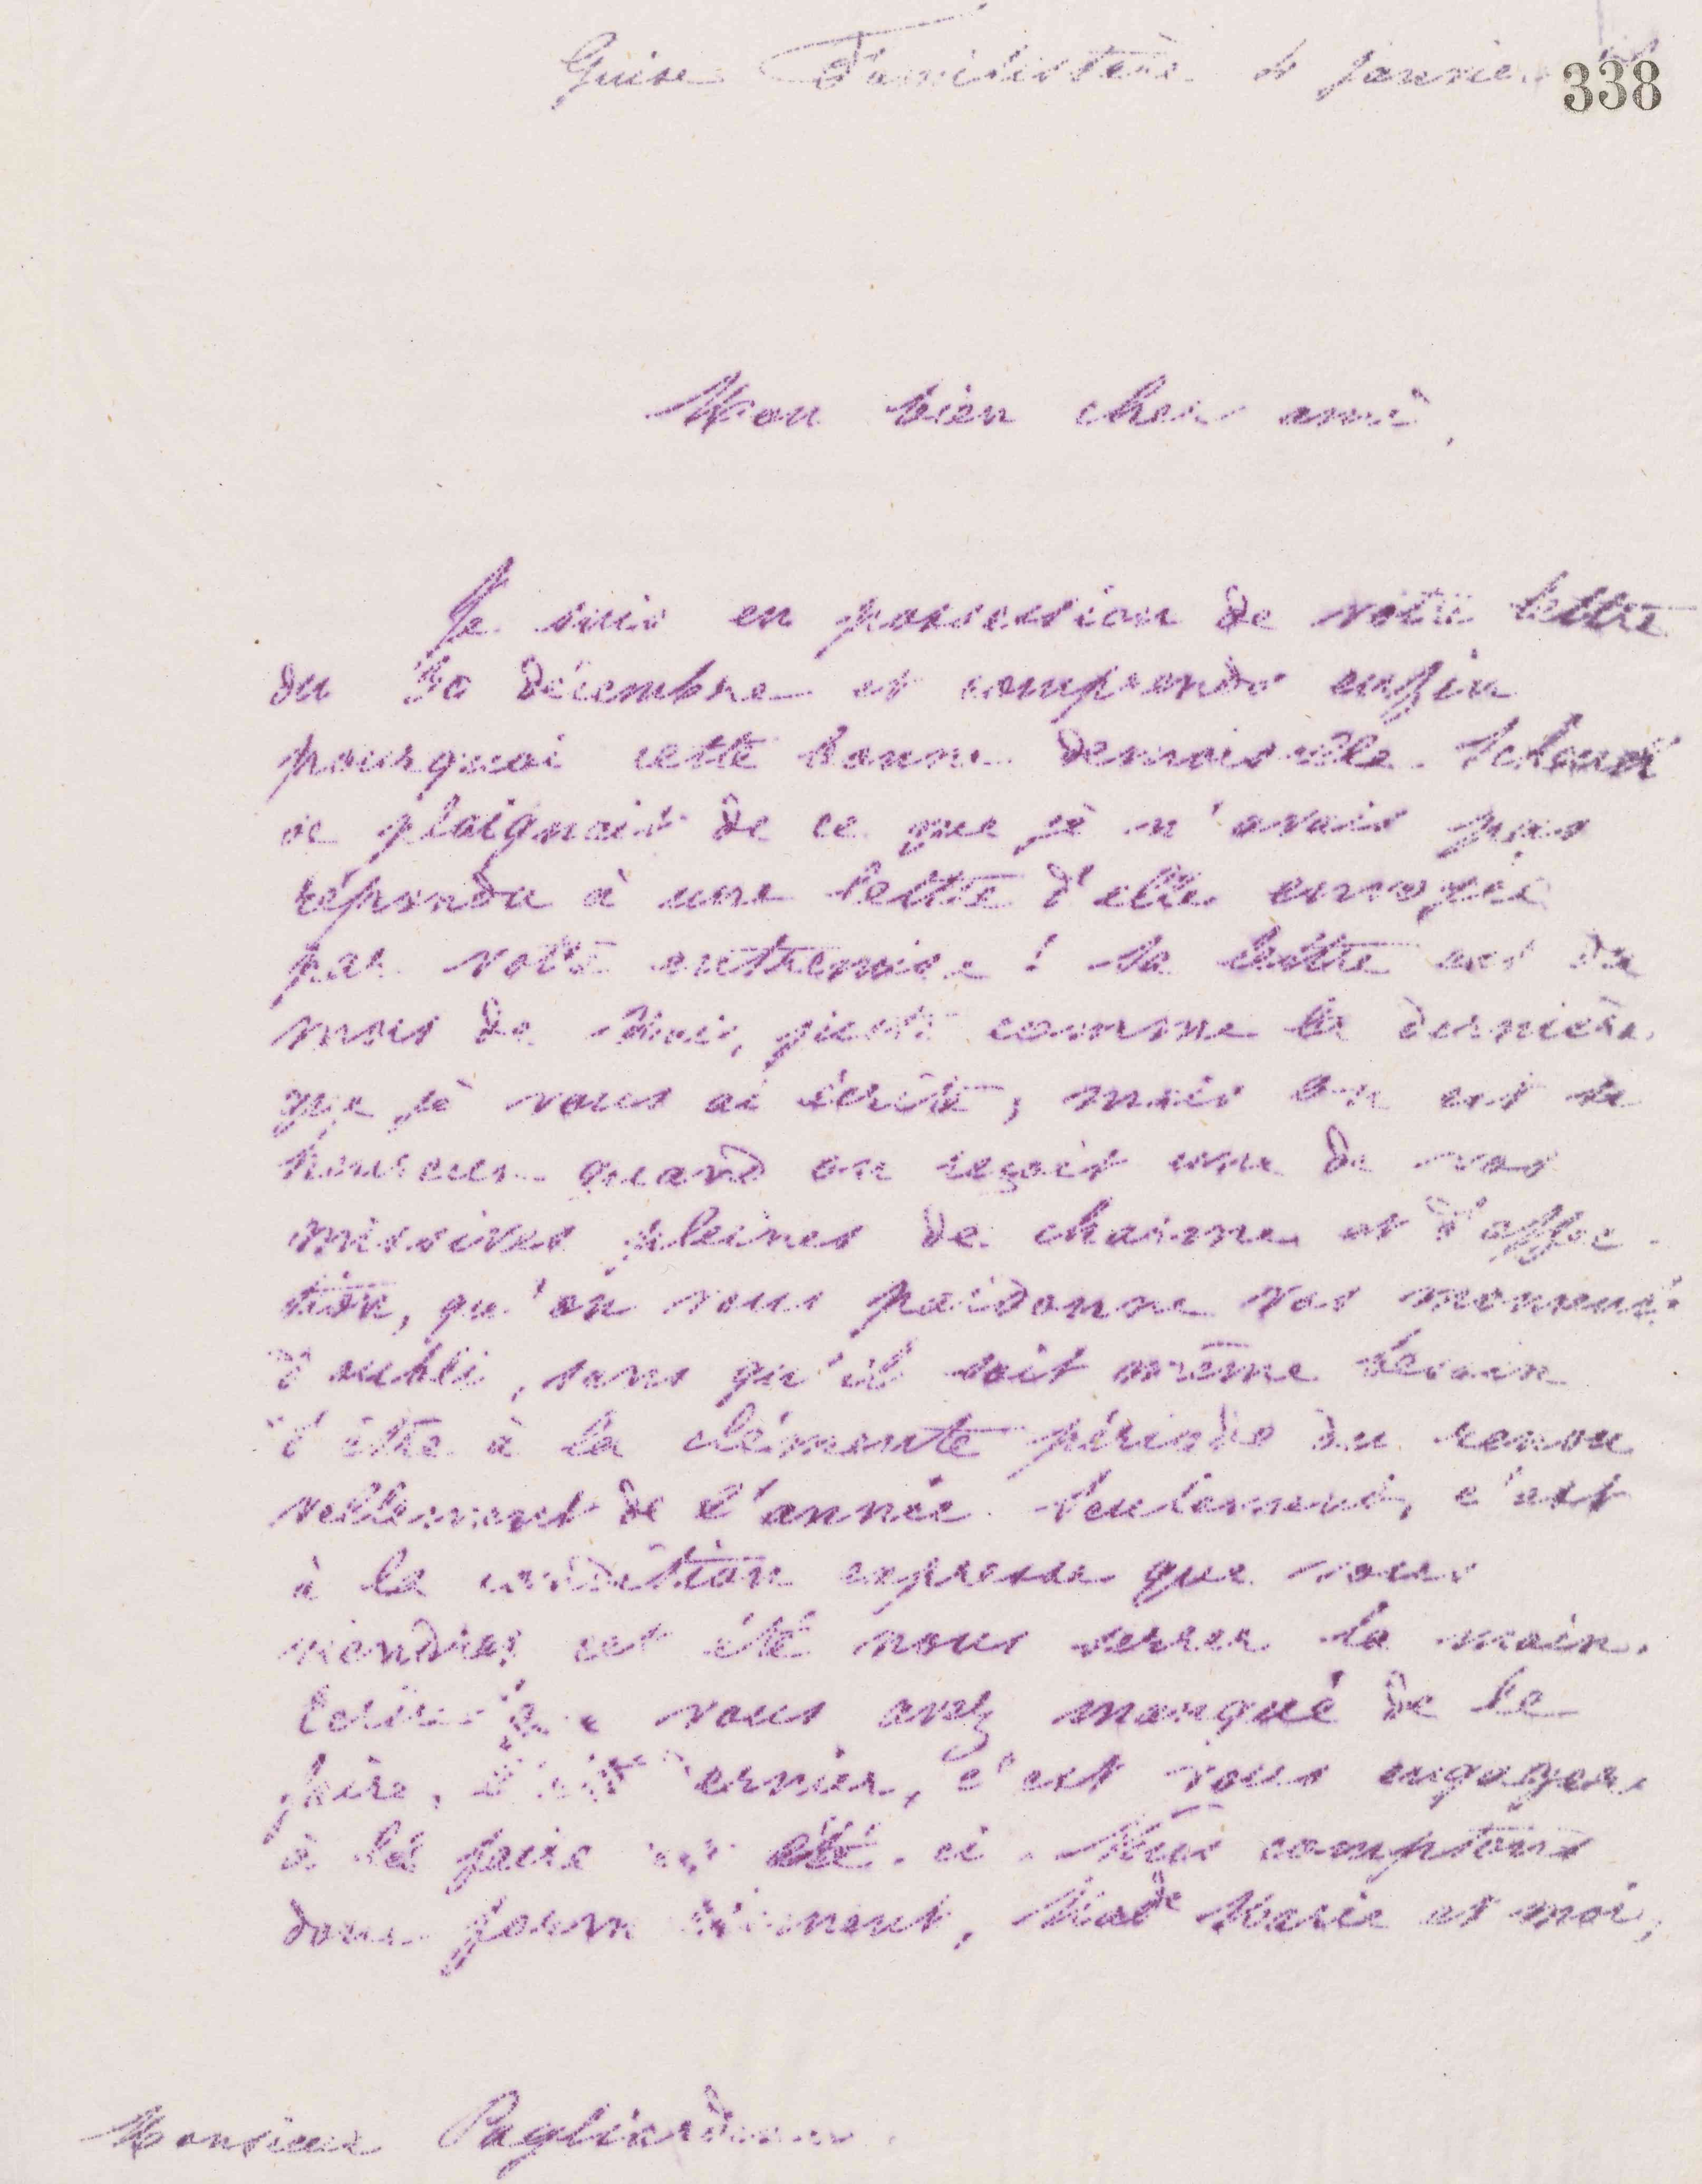 Guise Familistère 4 janvier
338
Mon bien cher ami,
Je suis en possession de votre lettre
du 30 décembre et comprends enfin
pourquoi cette bonne demoiselle
se plaignait de ce que je n'avais pas
répondu à une lettre d'elle envoyée
par votre entremise ! Sa lettre est du
mois de Mai, juste comme la dernière
que je vous ai écrite ; mais on est si
heureux quand on reçoit une de vos
missives pleines de charme et d'affec-
tion, qu'on vous pardonne vos moments
d'oubli, sans qu'il soit même besoin
d'être à la clémente période du renou
vellement de l'année. Seulement, c'est
à la condition expresse que vous
viendrez cet été nous serrer la main.
vous avez manqué de le
faire, l'été dernier, c'est vous engager
à le faire cet été-ci. Nous comptons
donc formellement, Made Marie et moi,
Monsieur Pagliardini